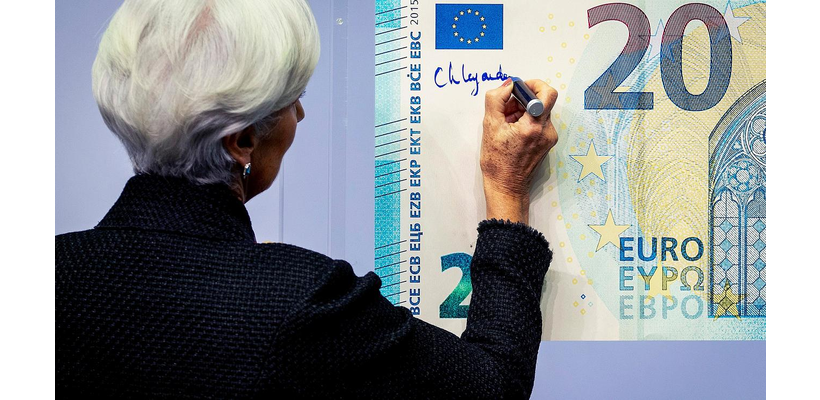 2015
BCE ECB ЕЦБ EZB EKP EKT EKB BĊE EBC
20
2
EURO
ΕΥΡΩ
ЕВРО